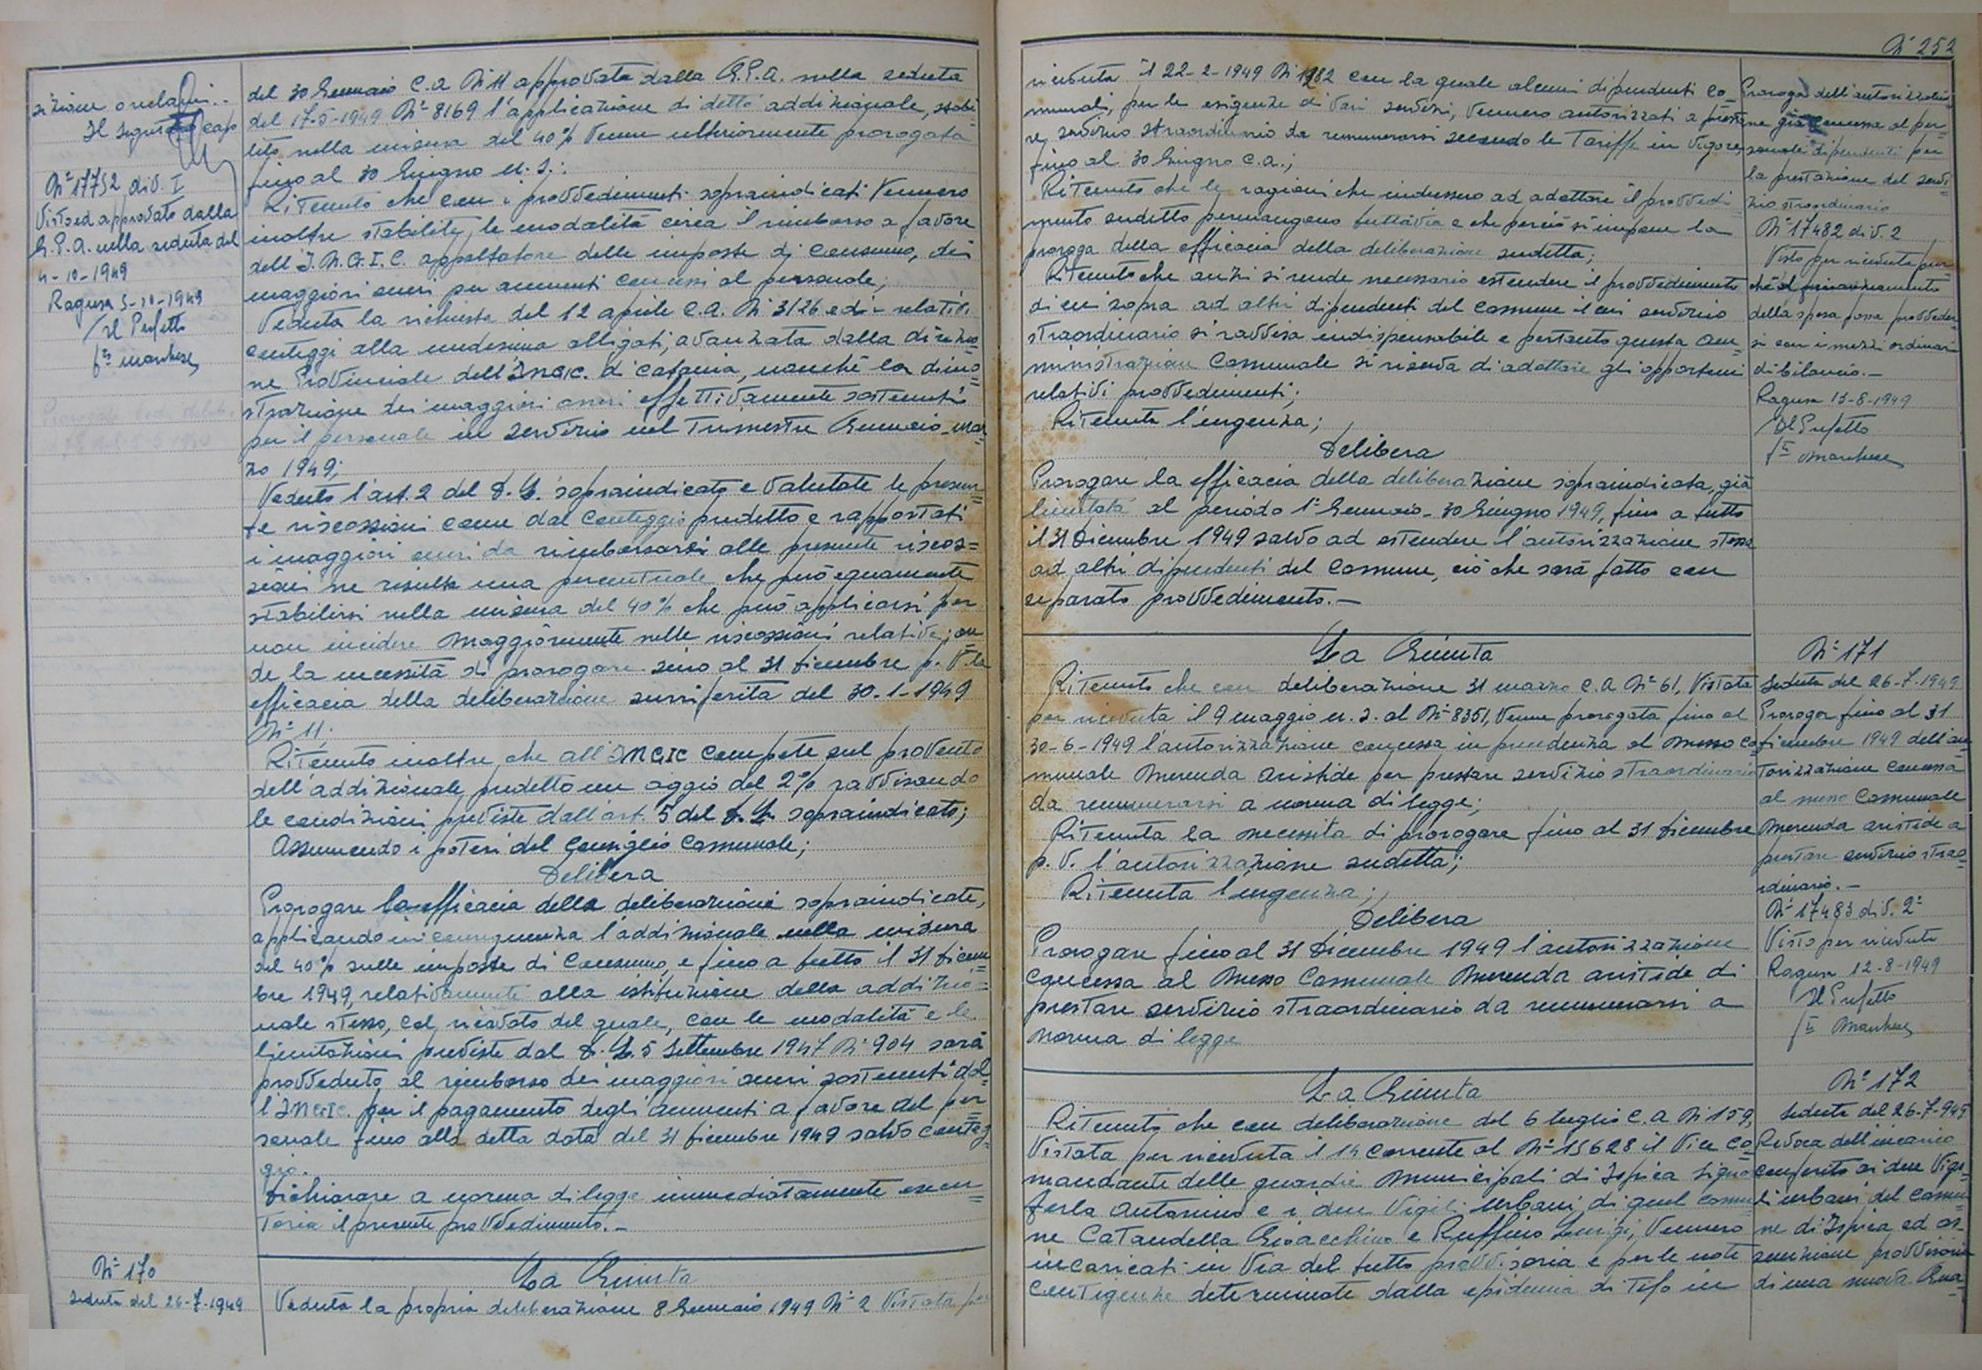 sizione o reclami.
Il Segretario capo
N° 17752 div. I
Visto ed approvato dalla
G.P.A. nella seduta del
4-10-1949
Ragusa 5-10-1949
Il Prefetto
fto Marchese
del 30 Gennaio c.a. N. 11 approvata dalla G.P.A. nella seduta
del 17-5-1949 N° 8169 l'applicazione di detto addizionale, stabi-
lito nella misura del 40% venne ulteriormente prorogata
fino al 30 Giugno u.s.:
Ritenuto che con i provvedimenti sopraindicati vennero
inoltre stabilite, le modalità circa il rimborso a favore
dell'I.N.G.I.C. appaltatore delle imposte di consumo, dei
maggiori oneri per aumenti concessi al personale;
Veduta la richiesta del 12 aprile c.a. N. 3126 ed i relativi
conteggi alla medesima alligati, avanzata dalla direzio-
ne Provinciale dell'INGIC. di Catania, nonchè la dimo-
strazione dei maggiori oneri effettivamente sostenuti
per il personale in servizio nel Trimestre Gennaio-mar-
zo 1949;
Veduto l'art. 2 del D.L. sopraindicato e valutate le presun-
te riscossioni come dal conteggio predetto e rapportati
i maggiori oneri da rimborsarsi alle presunte riscos=
sioni ne risulta una percentuale che può equamente
stabilirsi nella misura del 40% che può applicarsi per
non incidere maggiormente nelle riscossioni relative; on-
de la necessità di prorogare sino al 31 Dicembre p.v. la
efficacia della deliberazione surriferita del 30-1-1949
N° 11.
Ritenuto inoltre, che all'INGIC compete sul provento
dell'addizionale predetto un aggio del 2% ravvisando
le condizioni previste dall'art. 5 del D.L. sopraindicato;
Assumendo i poteri del Consiglio Comunale;
Delibera
Prorogare la efficacia della deliberazione sopraindicate,
applicando in conseguenza l'addizionale nella misura
del 40% sulle imposte di Consumo, e fino a tutto il 31 Dicem-
bre 1949, relativamente alla istituzione della addizio=
nale stesso, col ricavato del quale, con le modalità e le
limitazioni previste dal D.L. 5 Settembre 1947 N° 904 sarà
provveduto al rimborso dei maggiori oneri sostenuti dal-
l'INGIC. per il pagamento degli aumenti a favore del per-
sonale fino alla detta data del 31 Dicembre 1949 salvo conteg-
gio.
Dichiarare a norma di legge immediatamente esecu-
toria il presente provvedimento.-
N° 170
Seduta del 26-7-1949
La Giunta
Veduta la propria deliberazione 8 Gennaio 1949 N° 2 Vistata per
N° 252
ricevuta il 22-2-1949 N° 1982 con la quale alcuni dipendenti co-
munali, per le esigenze di vari servizi, vennero autorizzati a presta-
re, servizio straordinario da remunerarsi secondo le Tariffe in vigore,
fino al 30 Giugno c.a.;
Ritenuto che le ragioni che indussero ad adottare il provvedi-
mento sudetto permangono tuttavia e che perciò si impone la
proroga della efficacia della deliberazione sudetta;
Ritenuto che anzi si rende necessario estendere il provvedimento
di cui sopra ad altri dipendenti del comune il cui servizio
straordinario si ravvisa indispensabile e pertanto questa am-
ministrazione Comunale si riserva di adottare gli opportuni
relativi provvedimenti;
Ritenuta l'urgenza;
Delibera
Prorogare la efficacia della deliberazione sopraindicata, già
limitata al periodo 1° Gennaio - 30 Giugno 1949, fino a tutto
il 31 Dicembre 1949 salvo ad estendere l'autorizzazione stessa
ad altri dipendenti del Comune, ciò che sarà fatto con
separato provvedimento.-
Proroga dell'autorizzazio-
ne già concessa al per-
sonale dipendenti per
la prestazione del servi-
zio straordinario
N° 17482 div. 2
Visto per ricevuta pur-
chè al finanziamento
della spesa possa provveder-
si con i mezzi ordinari
di bilancio.-
Ragusa 13-8-1949
Il Prefetto
fto Marchese
La Giunta
Ritenuto che con deliberazione 31 marzo c.a. N° 61, vistata
per ricevuta il 9 maggio u.s. al N° 8351, venne prorogata fino al
30-6-1949 l'autorizzazione concessa in precedenza al Messo co-
munale Merenda Aristide per prestare servizio straordinario
da remunerarsi a norma di legge;
Ritenuta la necessita di prorogare fino al 31 Dicembre
p.v. l'autorizzazione sudetta;
Ritenuta l'urgenza;
Delibera
Prorogare fino al 31 Dicembre 1949 l'autorizzazione
concessa al Messo Comunale Merenda Aristide di
prestare servizio straordinario da remunerarsi a
norma di legge
N° 171
Seduta del 26-7-1949
Proroga fino al 31
Dicembre 1949 dell'au-
torizzazione concessa
al messo Comunale
Merenda Aristide a
prestare servizio strao-
rdinario.-
N° 17483 div. 2ª
Visto per ricevuta
Ragusa 12-8-1949
Il Prefetto
fto Marchese
La Giunta
Ritenuto che con deliberazione del 6 luglio c.a. N. 159,
Vistata per ricevuta il 14 corrente al N° 15628 il Vice Co-
mandante delle guardie Municipali di Ispica Signor
Ferla Antonino e i due Vigili Urbani di quel comu-
ne Cataudella Gioacchino e Ruffino Luigi, vennero
incaricati in via del tutto provvisoria e per le note
contigenze determinate dalla epidemia di Tifo in
N° 172
Seduta del 26-7-949
Revoca dell'incarico
conferito ai due Vigi-
li urbani del comu-
ne di Ispica ed as-
sunzione provvisoria
di una nuova Gua-